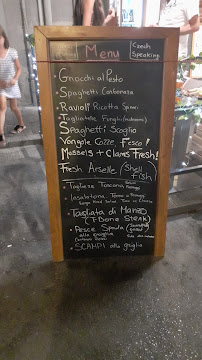 Menu
Czech
Speaking
Gnocchi al Pesto
Spaghetti Carbonara
Ravioli Ricotta Spinaci
Tagliatele Funghi
Spaghetti Scoglio
Vongole Cozze Fresco!
Mussels + Clames Fresh!
Fresh Arselle (Shell
fish)
Tagliere Toscano
Insalatona
Tagliata di Manzo
(T-Bona Steak)
Pesce Spada
alla griglia
SCAMPI alla griglia